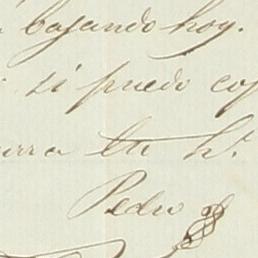 bajando hoy.
si puedo co
tu h.
Pedro